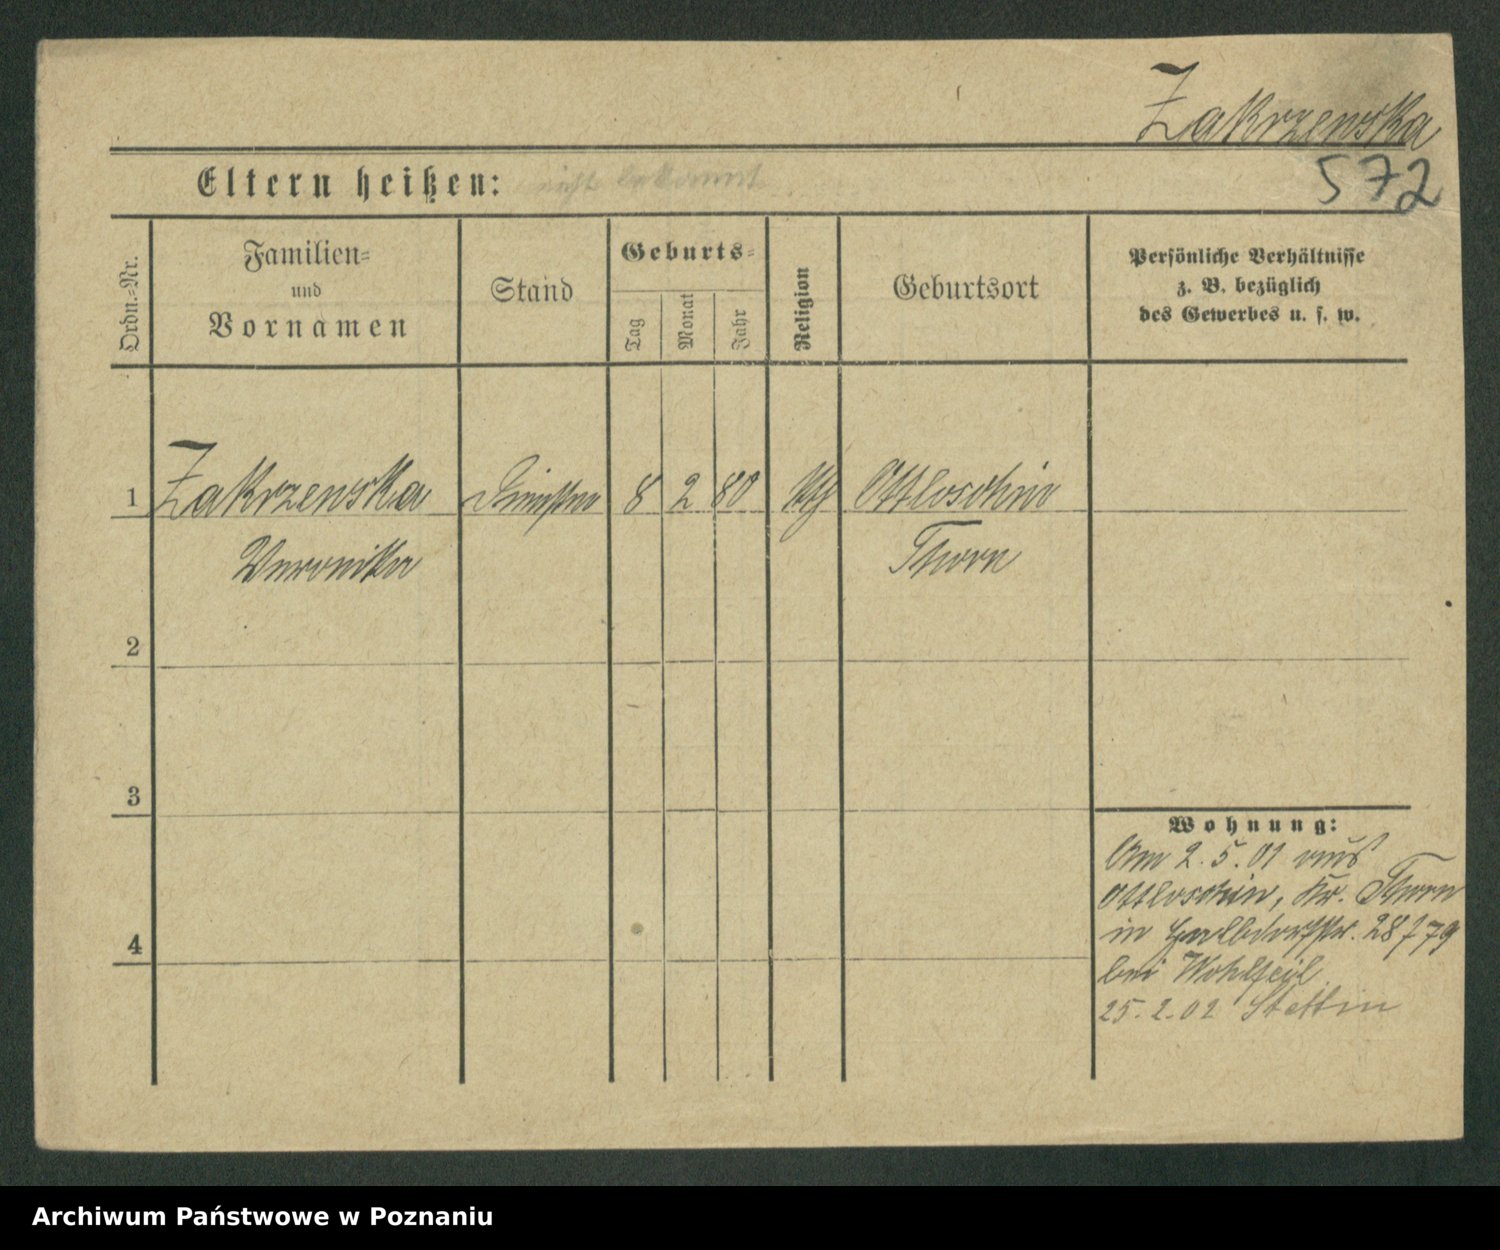 Zakrzewska
572
Eltern heißen: nicht bekannt
Ordn.-Nr.
Familien-
und
Vornamen
Stand
Geburts-
Tag
Monat
Jahr
Religion
Geburtsort
Persönliche Verhältnisse
z. B. bezüglich
des Gewerbes u. s. w.
1 Zakrzewska 8 2 80 kth Ottloschin
Veronika Thorn
2
3
4
Wohnung:
Am 2.5.01 aus
Ottloschin, Kr. Thorn
in Halbdorfstr. 28/79
bei Wohlfeil
25.2.02 Stettin
Archiwum Państwowe w Poznaniu